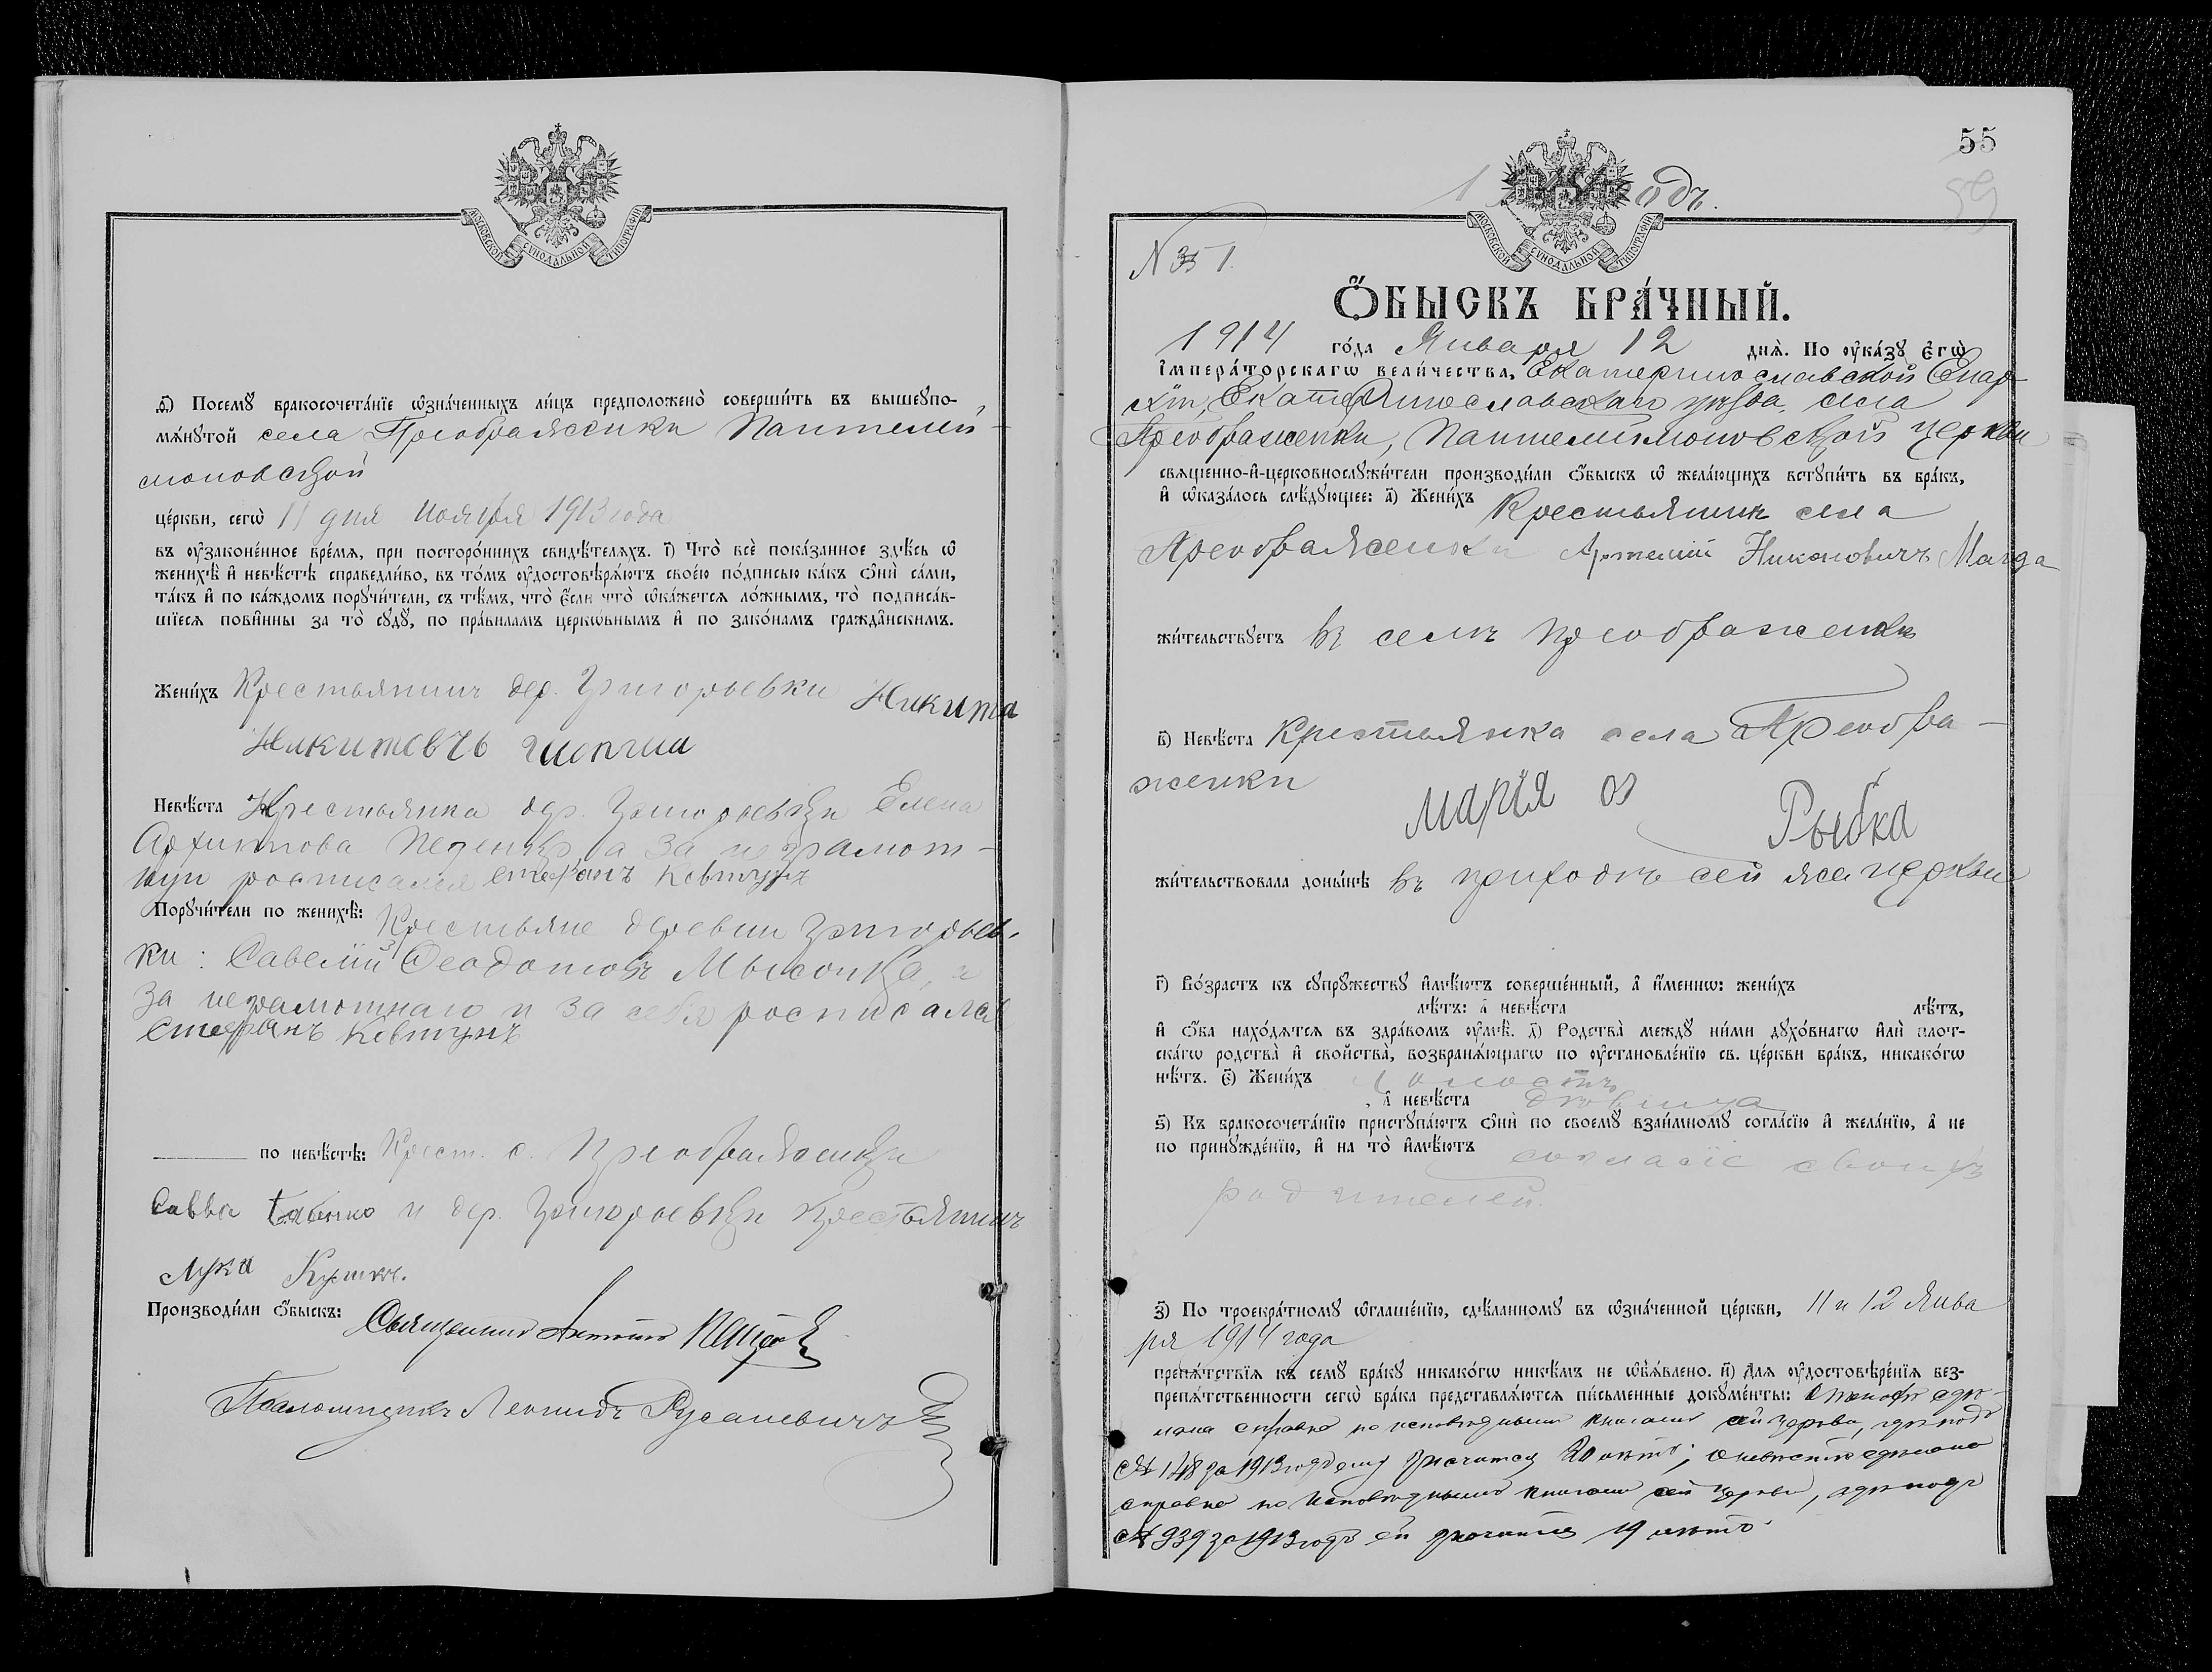 МОСКОВСКОЙ СѴНОДАЛЬНОЙ ТИПОГРАФІИ
ѳ҃) Посемꙋ̀ бракосочета́нїе ѡ҆зна́ченныхъ ли́цъ предположено̀ соверши́ть въ вышеꙋпо-
мѧ́нꙋтой села Преображенки Пантелей-
моновской
це́ркви, сегѡ̀ 11 дня ноября 1913 года
въ ᲂу҆зако́ненное вре́мѧ, при посторо́ннихъ свидѣ́телѧхъ. і҃) Что̀ всѐ пока́занное здѣ́сь ѡ҆
женихѣ̀ и҆ невѣ́стѣ справедли́во, въ то́мъ ᲂу҆достовѣрѧ́ютъ свое́ю по́дписью ка́къ ѻ҆нѝ са́ми,
та́къ и҆ по ка́ждомъ порꙋчи́тели, съ тѣ́мъ, что̀ є҆́сли что̀ ѡ҆ка́жетсѧ ло́жнымъ, то̀ подписа́в-
шїесѧ пови́нны за то̀ сꙋдꙋ̀, по пра́вилам церкѡ́внымъ и҆ по зако́намъ гражда̂нскимъ.
Жени́хъ Крестьянинъ дер. Григорьевки Никита
Никитовъ
Невѣ́ста Крестьянка дер. Григорьевки Елена
Архипова а за неграмот-
ную росписался Стефанъ Ковтунъ
Порꙋчи́тели по женихѣ̀: Крестьяне деревни Григорьев-
ки: Савелій Ѳеодотовъ Мысочка, а
за неграмотнаго и за себя росписался
Стефанъ Ковтунъ
по невѣ́стѣ: Крест. с. Преображенки
Савва и дер. Григорьевки крестьянинъ
Лука
Производи́ли ѻ҆́быскъ: Священникъ Антоній
Псаломщикъ Леонидъ Русаневичъ
55
59
1 одъ.
МОСКОВСКОЙ СѴНОДАЛЬНОЙ ТИПОГРАФІИ
N 1.
Ѻ҆́БЫСКЪ БРА́ЧНЫЙ.
1914 го́да Января 12 днѧ̀. По ᲂу҆ка́зꙋ є҆гѡ̀
і҆мпера́торскагѡ вели́чества, Екатеринославской Епар-
хіи, Екатеринославскаго уѣзда, села
Преображенки, Пантелеимоновской церкви
свѧще́нно-и҆-церковнослꙋжи́тели производи́ли ѻ҆́быскъ ѡ҆ жела́ющихъ встꙋпи́ть въ бра́къ,
и҆ ѡ҆каза́лось слѣ́дꙋющее: а҃) Жени́хъ Крестьянинъ села
Преображенки Артемій Никоновичъ Магда
жи́тельствꙋетъ въ селѣ Преображенкѣ
в҃) Невѣ́ста Крестьянка села Преобра-
женки
Марія Рыбка
жи́тельствовала доны́нѣ въ приходѣ сей же церкви
г҃) Во́зрастъ къ сꙋпрꙋ́жествꙋ и҆мѣ́ютъ соверше́нный, а҆ и҆́меннѡ: жени́хъ
лѣ́тъ: а҆ невѣ́ста лѣ́тъ,
и҆ ѻ҆́ба нахо́дѧтсѧ въ здра́вомъ ᲂу҆мѣ̀. д҃) Родства̀ междꙋ̀ ни́ми дꙋхо́внагѡ и҆лѝ плот-
ска́гѡ родства̀ и҆ сво́йства, возбранѧ́ющагѡ по ᲂу҆становле́нїю св. це́ркви бра́къ, никако́гѡ
нѣ́тъ. є҃) Жени́хъ холостъ
, а҆ невѣ́ста дѣвица
ѕ҃) Къ бракосочета́нїю пристꙋпа́ютъ ѻ҆нѝ по своемꙋ̀ взаи́мномꙋ согла́сїю и҆ жела́нїю, а҆ не
по принꙋжде́нїю, и҆ на то̀ и҆мѣ́ютъ согласіе своихъ
родителей.
з҃) По троекра́тномꙋ ѡ҆глаше́нїю, сдѣ́ланномꙋ въ ѡ҆зна́ченной це́ркви, 11 и 12 Янва
ря 1914 года
препѧ́тствїѧ къ семꙋ̀ бра́кꙋ никако́гѡ никѣ́мъ не ѡ҆б̾ѧ́влено. и҃) Длѧ ᲂу҆достовѣре́нїѧ без-
препѧ́тственности сегѡ̀ бра́ка представлѧ́ютсѧ пи́сьменные докꙋме́нты: О женихѣ сдѣ-
лана справка по исповѣднымъ книгамъ сей церкви, гдѣ подъ
№ 148 за 1913 годъ ему значится 20 лѣтъ; о невѣстѣ сдѣлана
справка по исповѣднымъ книгамъ сей церкви, гдѣ подъ
№ 939 за 1913 годъ ей значится 19 лѣтъ.